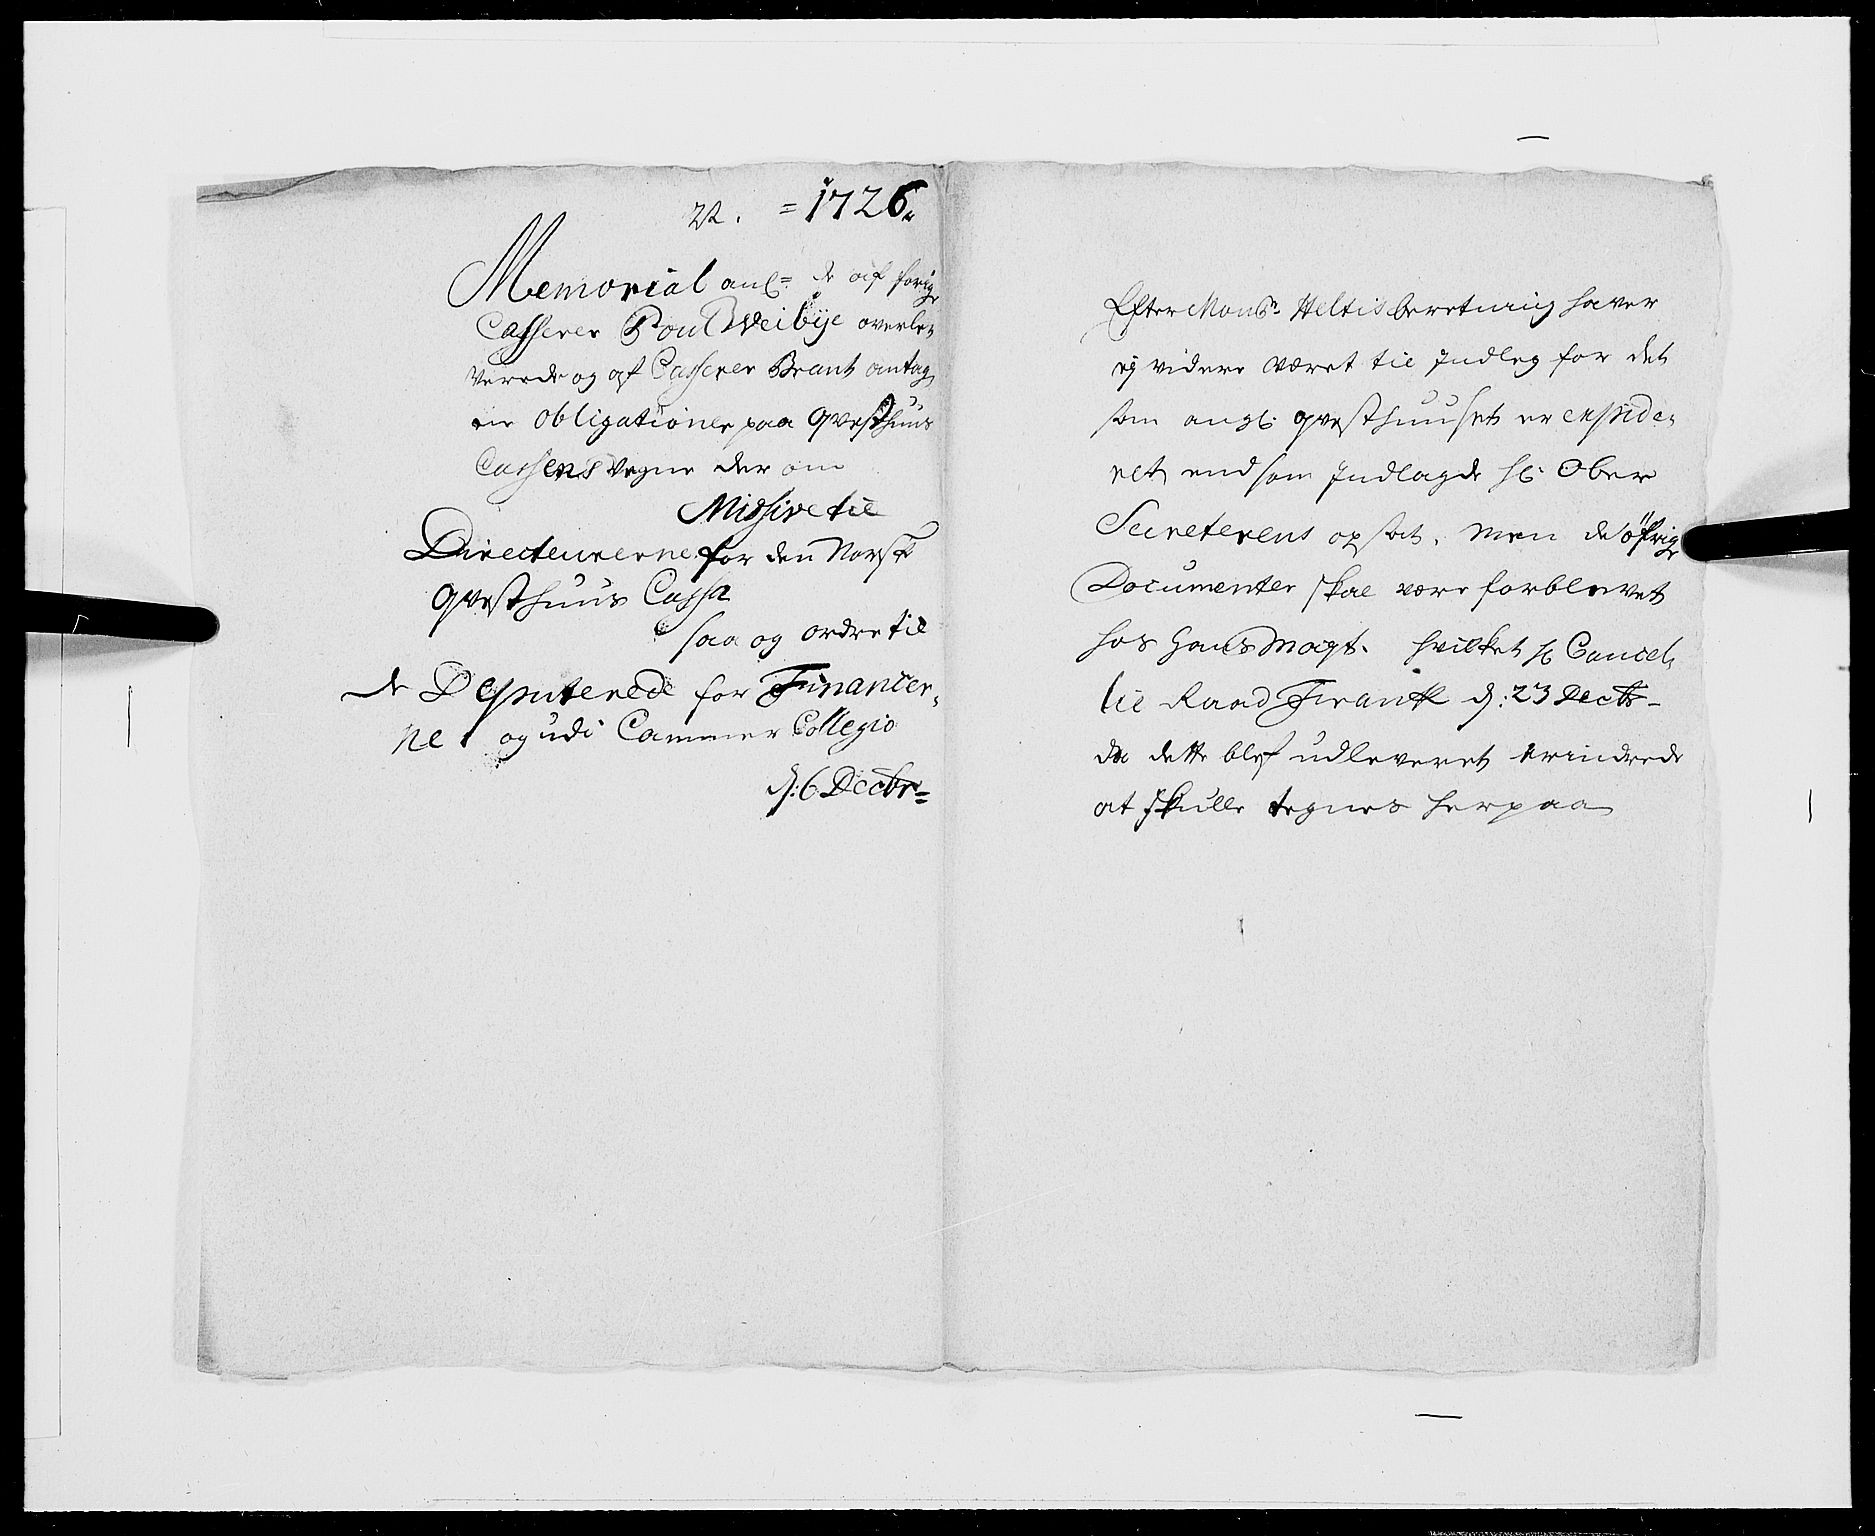 22. = 1726.
Memorial anl= de af forige
Casserer Poul Weibÿe overle-
verede og af Casserer Brant antag-
ne Obligationer paa Qvæsthuus
Cassens Vegne der om
Missive til
Directeurerne for den Norske
Qvæsthuus Cassa
saa og ordre til
de Deputerede for Financer-
ne og udi Cammer Collegio
d: 6 Decbr=
Efter Monsr Heltis beretning haver
ej videre været til Indleg for det
som angl: Qvæsthuuset er expide-
ret, end som Indlagde hl: Ober
Secreterens opsat. Men de öfrige
Documenter skal være forblevet
hos Hans Mayt. hvilket hl Cancel-
lie Raad Franck d: 23 Decbr
da dette blef udleveret erindrede
at skulle tegnes herpaa